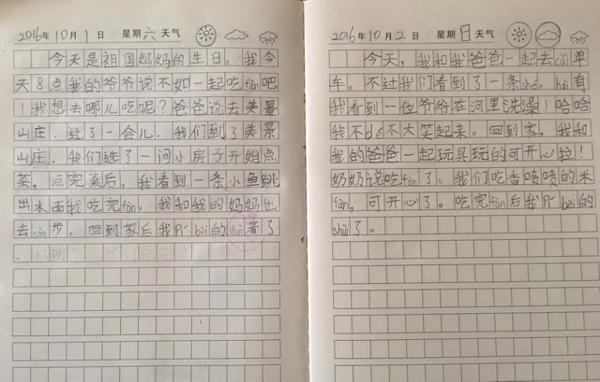 2016年10月1日 星期六 天气
今天是祖国妈妈的生日。我今
天8点我的爷爷说不如一起吃fàn吧
！我想去哪儿吃呢？爸爸说去美景
山庄。过了一会儿，我们到了美景
山庄。我们选了一间小房子开始点
菜，点完菜后，我看到一条小鱼跳
出水面我吃完fàn。我和我的妈妈出
去sàn步。回到家后我pí bèi的shuì着了
。
2016年10月2日 星期日 天气
今天，我和我爸爸一起去cǎi单
车。不过我们看到了一条shé。hái有
我看到一位爷爷在河里洗澡！哈哈
我不dé不大笑起来。回到家，我和
我的爸爸一起玩具玩的可开心拉！
奶奶说吃fàn了。我们吃香喷喷的米
fàn，可开心了。吃完fàn后我pí bèi的
shuì了。